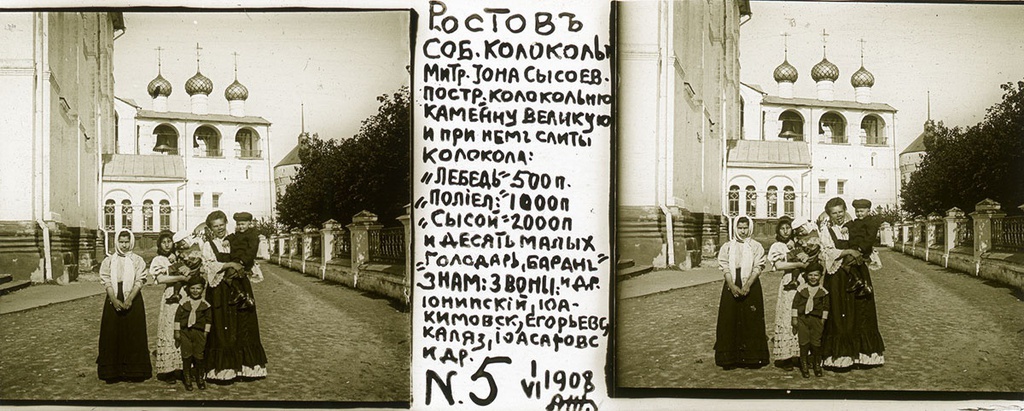 Ростовъ
Соб. колокольн
Митр. Iона Сысоев.
постр. колокольню
каменну великую
и при немъ слиты
колокола:
"Лебедь" 500п.
"Полiел:" 1000п
"Сысой" 2000п
и десять малых
"Голодарь, Баранъ"
Знам: звоны: и др.
iонинскiй, iоа-
кимовск, Егорьевс,
каляз, iоасафовс
и др.
N. 5 I VI 1908